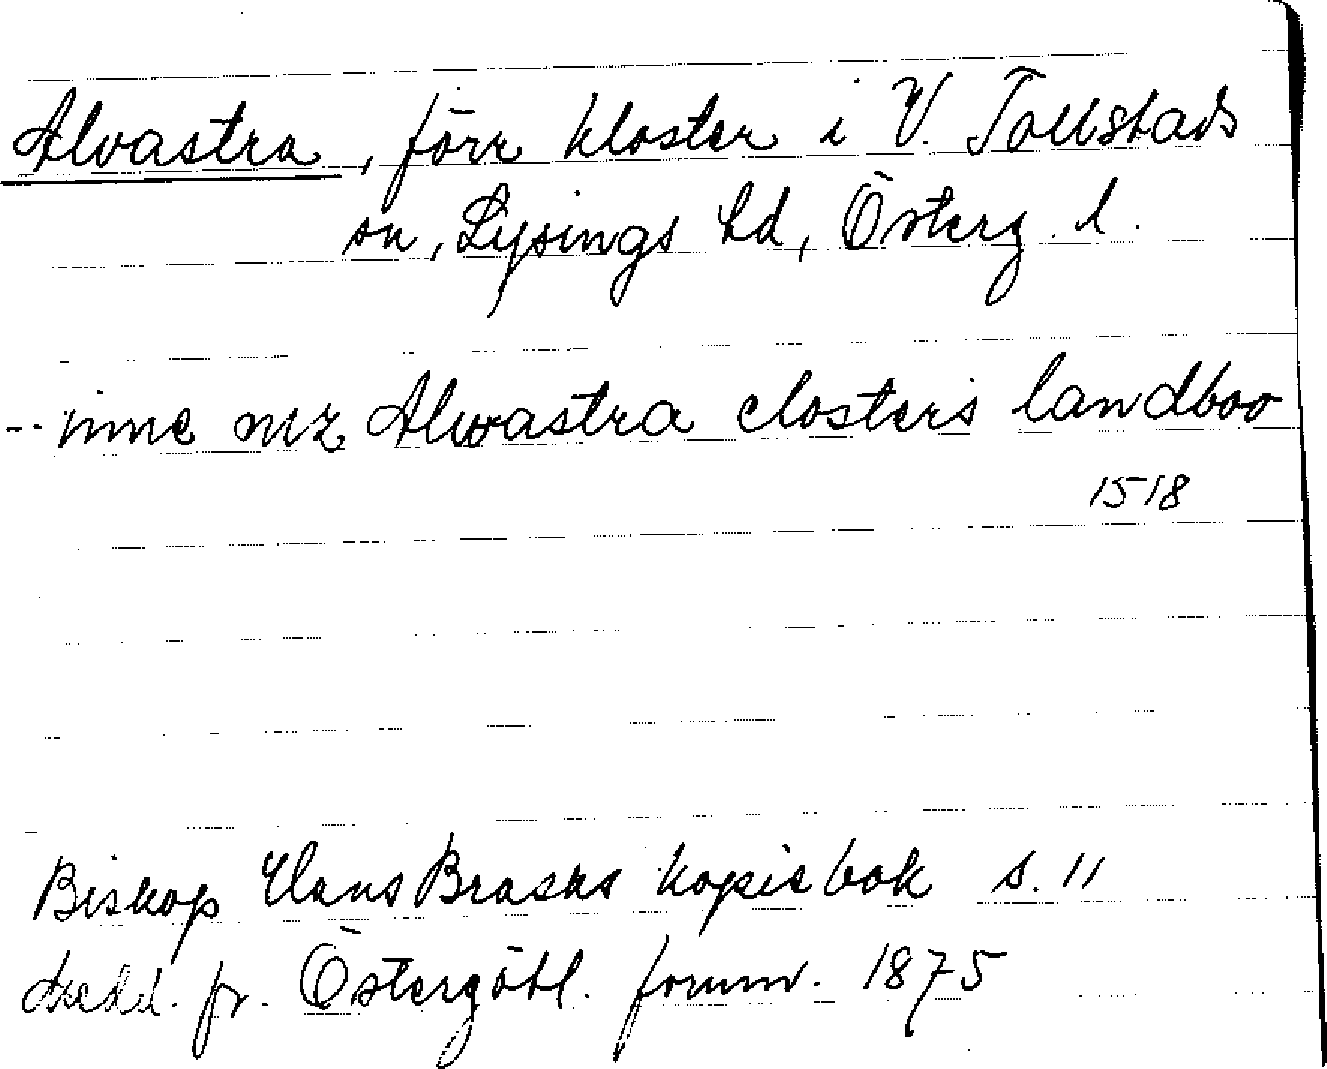 Alvastra, förr kloster i V. Tollstads
sn, Lysings hd, Österg. l.
-- inne mz Alwastra closters landboo
1518
Biskop Hans Brasks kopiebok s. 11
Medd. fr. Östergötl. fornm. 1875